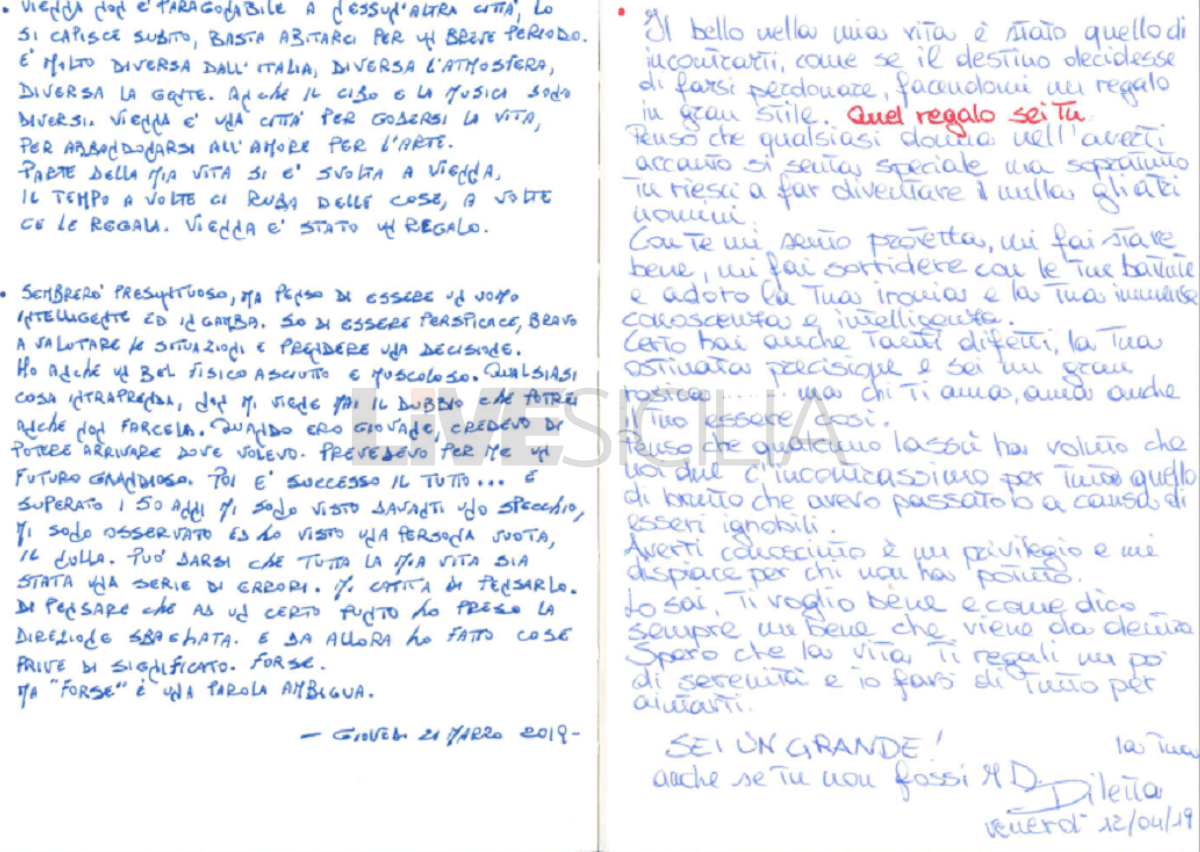 • VIENNA NON E' PARAGONABILE A NESSUN'ALTRA CITTA', LO
SI CAPISCE SUBITO, BASTA ABITARCI PER UN BREVE PERIODO.
E' MOLTO DIVERSA DALL'ITALIA, DIVERSA L'ATMOSFERA,
DIVERSA LA GENTE. ANCHE IL CIBO E LA MUSICA SONO
DIVERSI. VIENNA E' UNA CITTA' PER GODERSI LA VITA,
PER ABBANDONARSI ALL'AMORE PER L'ARTE.
PARTE DELLA MIA VITA SI E' SVOLTA A VIENNA,
IL TEMPO A VOLTE CI RUBA DELLE COSE, A VOLTE
CE LE REGALA. VIENNA E' STATO UN REGALO.
• SEMBRERO' PRESUNTUOSO, MA PENSO DI ESSERE UN UOMO
INTELLIGENTE ED IN GAMBA. SO DI ESSERE PERSPICACE, BRAVO
A VALUTARE LE SITUAZIONI E PRENDERE UNA DECISIONE.
HO ANCHE UN BEL FISICO ASCIUTTO E MUSCOLOSO. QUALSIASI
COSA INTRAPRENDA, NON MI VIENE MAI IL DUBBIO CHE POTREI
ANCHE NON FARCELA. QUANDO ERO GIOVANE, CREDEVO DI
POTERE ARRIVARE DOVE VOLEVO. PREVEDEVO PER ME UN
FUTURO GRANDIOSO. POI E' SUCCESSO IL TUTTO... E
SUPERATO I 50 ANNI MI SONO VISTO DAVANTI UNO SPECCHIO,
MI SONO OSSERVATO ED HO VISTO UNA PERSONA VUOTA,
IL NULLA. PUO' DARSI CHE TUTTA LA MIA VITA SIA
STATA UNA SERIE DI ERRORI. MI CAPITA DI PENSARLO.
DI PENSARE CHE AD UN CERTO PUNTO HO PRESO LA
DIREZIONE SBAGLIATA. E DA ALLORA HO FATTO COSE
PRIVE DI SIGNIFICATO. FORSE.
MA "FORSE" È UNA PAROLA AMBIGUA.
- GIOVEDI 21 MARZO 2019-
• Il bello nella mia vita è stato quello di
incontrarti, come se il destino decidesse
di farsi perdonare, facendomi un regalo
in gran stile. Quel regalo sei Tu
Penso che qualsiasi donna nell'averti
accanto si senta speciale ma soprattutto
tu riesci a far diventare il nulla gli altri
uomini.
Con Te mi sento protetta, mi fai stare
bene, mi fai sorridere con le Tue battute
e adoro la Tua ironia e la Tua immensa
conoscenza e intelligenza.
Certo hai anche tanti difetti, la Tua
ostinata precisione e sei un gran
rosica........ ma chi ti ama, ama anche
il Tuo essere così.
Penso che qualcuno lassù ha voluto che
noi due c'incontrassimo per tutto quello
di brutto che avevo passato a causa di
esseri ignobili.
Averti conosciuto è un privilegio e mi
dispiace per chi non ha potuto.
Lo sai, Ti voglio bene e come dico
sempre un bene che viene da dentro
Spero che la vita Ti regali un po'
di serenità e io farò di Tutto per
aiutarti.
SEI UN GRANDE! la Tua
anche se Tu non fossi M D. Diletta
venerdì 12/04/19
LIVESICILIA